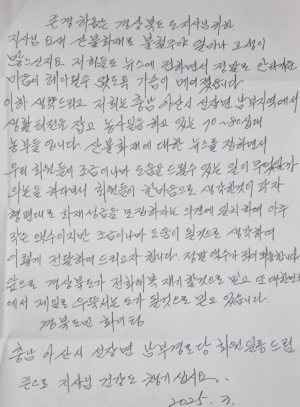 존경하옵는 경상북도 도지사님 귀하
지사님 요새 산불화재로 불철주야 얼마나 고생이
많으신지요. 저희들도 뉴스에 전하면서 정말로 안타까운
마음이 헤아릴수 없도록 가슴이 메어졌습니다
이하 생략드리고 저희는 충남 아산시 선장면 남부지역에서
생활터전을 잡고 농사일을 하고 있는 70~80세대
농부들 입니다. 산불화재에 대한 뉴스를 접하면서
우리 회원들이 조금이나마 도움을 드릴수 있는 일이 무엇일까
의논을 하다보니 회원들이 한마음으로 생각한것이 각자
형편대로 화재성금을 모금하자는 의견에 일치하여 아주
작은 액수이지만 조금이나마 도움이 될것으로 생각하여
이렇게 전달하여 드리고자 합니다. 정말 액수가 적어 죄송합니다
앞으로 경상북도가 전화위복 재기할것으로 믿고 또 대한민국
에서 제일로 우뚝서는 도가 될것으로 믿고 있습니다.
경북도민 화이팅
충남 아산시 선장면 남부경로당 회원일동 드림
끝으로 지사님 건강도 챙기십시요.
2025. 3.